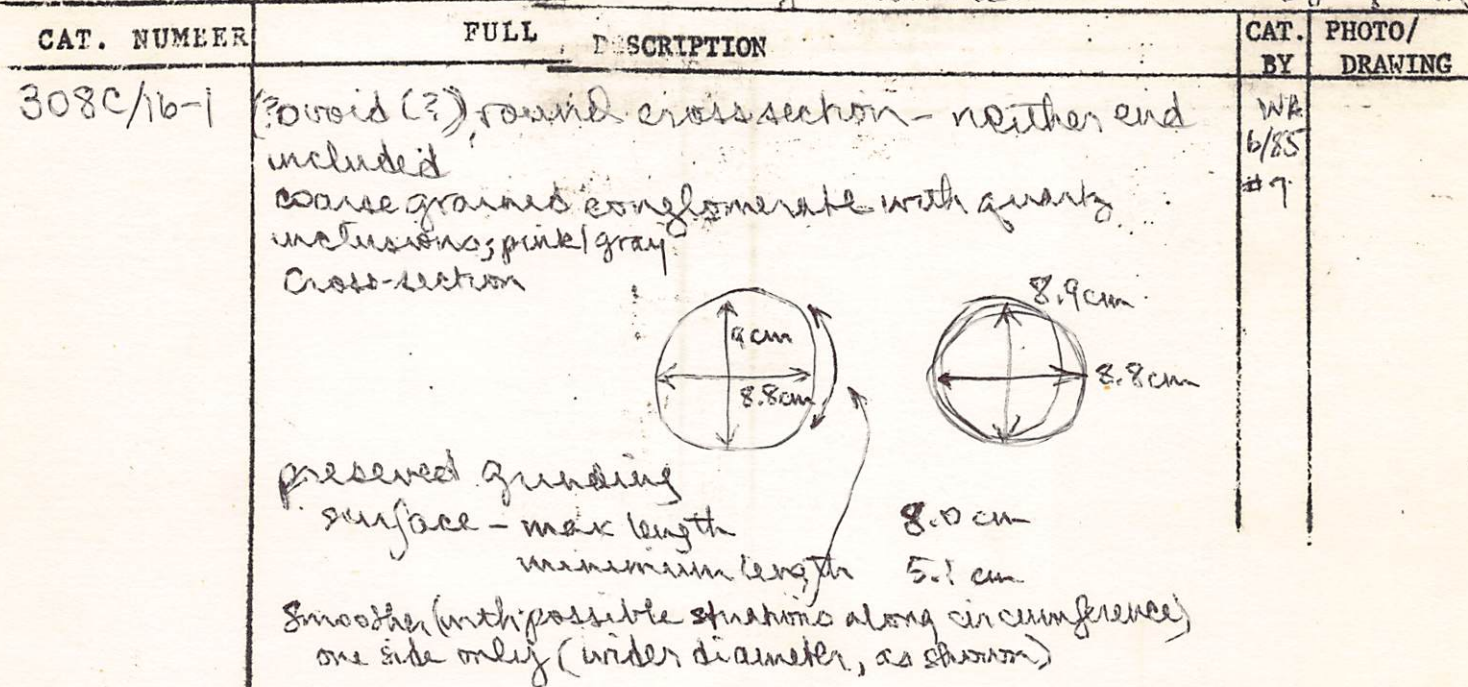 CAT. NUMBER FULL DESCRIPTION CAT. BY PHOTO/ DRAWING
308C/16-1 (?ovoid (?)), round cross section - neither end WA
included 6/85
coarse grained conglomerate with quartz #7
inclusions; pink/gray
Cross-section
8.9 cm
9 cm
8.8cm 8.8cm
preserved grinding
surface - max length 8.0 cm
minimum length 5.1 cm
Smoother (with possible striations along circumference)
one side only (wider diameter, as shown)